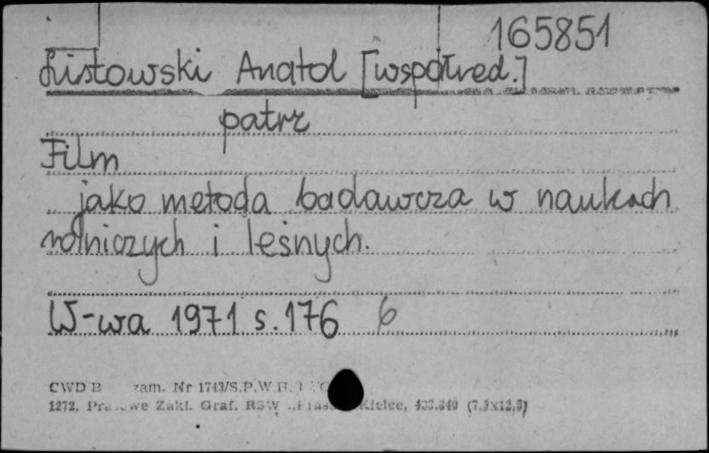 165851
Listowski Anatol [współred.]
patrz
Film
jako metoda badawcza w naukach
rolniczych i leśnych.
W-wa 1971 s. 176 6
CWD B zam. Nr 1743/S.P.W.H.
1272. Zakł. Graf. RSW Kielce, (7.5x12,5)